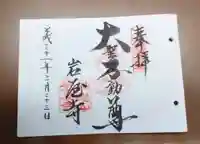 奉拝
大聖不動尊
岩屋寺
平成二十一年二月二十三日